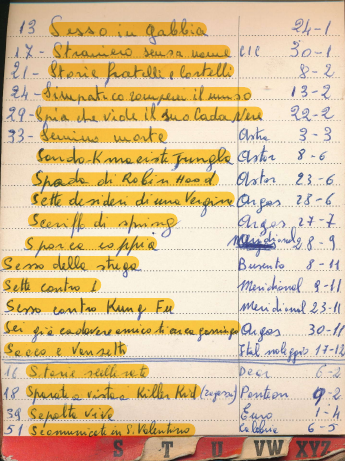 13 Sesso in gabbia 24-1
17- Straniero senza nome CIC 30-1
21- Storie fratelli e coltelli 8-2
24- Simpatico 13-2
29- Spia che vide il suo cadavere 22-2
33- Semino morte Astor 3-3
Sando-K maciste Jungla Astor 8-6
Spada di Robin Hood Astor 23-6
Sette desideri di una Vergine Argos 28-6
Sceriffo di spring Argos 27-7
Sporca coppia Meridional 28-9
Sesso della strega Busento 8-11
Sette contro 1 Meridional 9-11
Sesso contro Kung Fu Meridional 23-11
Sei già cadavere amico ti cerca garringo Argos 30-11
Sacco e Vanzetti Ital noleggio 17-12
11 Storie scellerate Dear 6-2
18 Sparate a vista a Killer Kid (ragosa) Panteon 9-2
39 Sepolta viva Euro 1-4
51 Scomunicate di S. Valentino 6-5
S T U VW XYZ